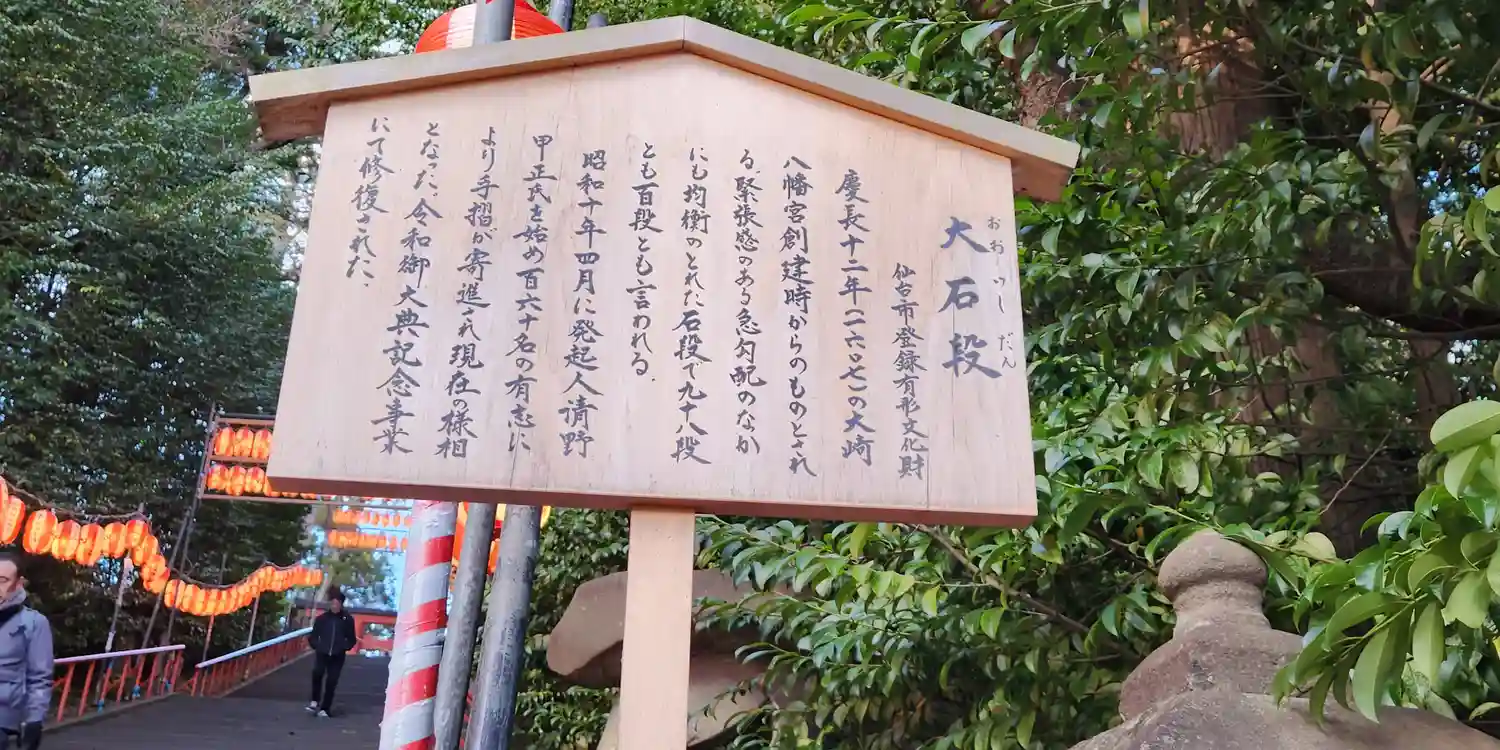 大石段
おおいしだん
仙台市登録有形文化財
慶長十二年(一六〇七)の大崎
八幡宮創建時からのものとされ
る。緊張感のある急勾配のなか
にも均衡のとれた石段で九十八段
とも百段とも言われる。
昭和十年四月に発起人請野
甲正氏を始め百六十名の有志に
より手摺が寄進され現在の様相
となった。令和御大典記念事業
にて修復された。